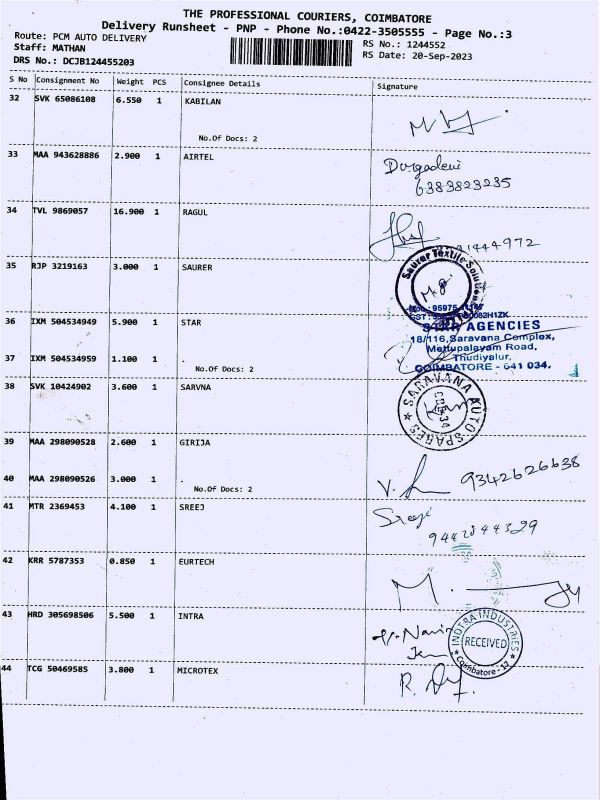 THE PROFESSIONAL COURIERS, COIMBATORE
Delivery Runsheet - PNP - Phone No.:0422-3505555 - Page No.:3
Route: PCM AUTO DELIVERY
RS No.: 1244552
Staff: MATHAN
RS Date: 20-Sep-2023
DRS No.: DCJB124455203
S No Consignment No Weight PCS Consignee Details Signature
32 SVK 65086108 6.550 1 KABILAN
No.Of Docs: 2
33 MAA 943628886 2.900 1 AIRTEL
Durgadevi
6383823235
34 TVL 9869057 16.900 1 RAGUL
1444972
35 RJP 3219163 3.000 1 SAURER
Saurer Textile Solutions
36 IXM 504534949 5.900 1 STAR
STAR AGENCIES
18/116, Saravana Complex,
Mettupalayam Road,
Thudiyalur,
COIMBATORE - 641 034.
37 IXM 504534959 1.100 1 .
No.Of Docs: 2
38 SVK 10424902 3.600 1 SARVNA
★ SARAVANA AUTO SPARES ★
39 MAA 298090528 2.600 1 GIRIJA
40 MAA 298090526 3.000 1 .
No.Of Docs: 2
9342626638
41 MTR 2369453 4.100 1 SREEJ
42 KRR 5787353 0.850 1 EURTECH
43 HRD 305698506 5.500 1 INTRA
INDUSTRIES
RECEIVED
Coimbatore
44 TCG 50469585 3.800 1 MICROTEX